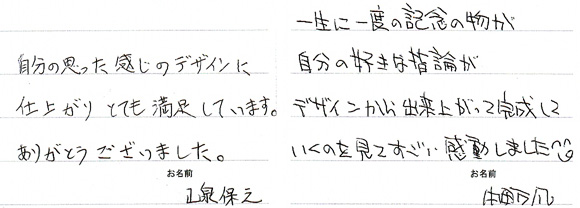 自分の思った感じのデザインに
仕上がりとても満足しています。
ありがとうございました。
お名前
一生に一度の記念の物が
自分の好きな指論が
デザインから出来上がって完成して
いくのを見てすごい感動しました
お名前